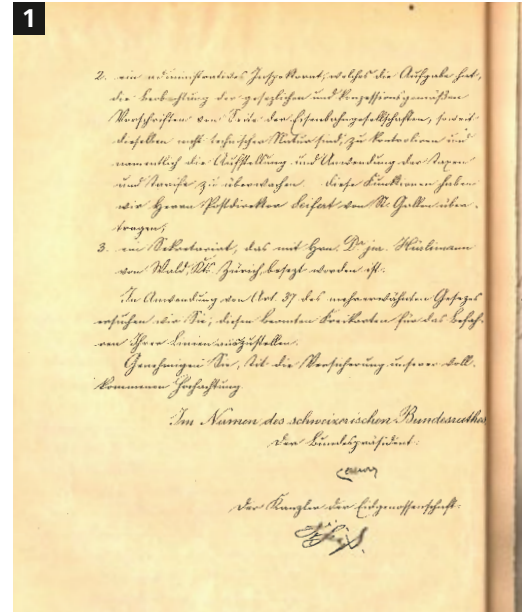 1
2. ein administratives Inspektorat, welches die Aufgabe hat,
die Beobachtung der gesezlichen und konzessionsgemäßen
Vorschriften von Seite der Eisenbahngesellschaften, soweit
dieselben nicht technischer Natur sind, zu kontroliren und
namentlich die Aufstellung und Anwendung der Taxen
und Tarife zu überwachen. Diese Funktionen haben
wir Herrn Postdirektor Seifert von St. Gallen über-
tragen;
3. ein Sekretariat, das mit Hrn. Dr. jur. Hürlimann
von Wald, Kts. Zürich, besezt worden ist.
In Anwendung von Art. 37 des mehrerwähnten Gesezes
ersuchen wir Sie, diesen Beamten Freikarten für das Befah-
ren Ihrer Linien auszustellen.
Genehmigen Sie, Tit. die Versicherung unserer voll-
kommenen Hochachtung.
Im Namen des schweizerischen Bundesrathes
Der Bundespräsident:
Der Kanzler der Eidgenossenschaft: